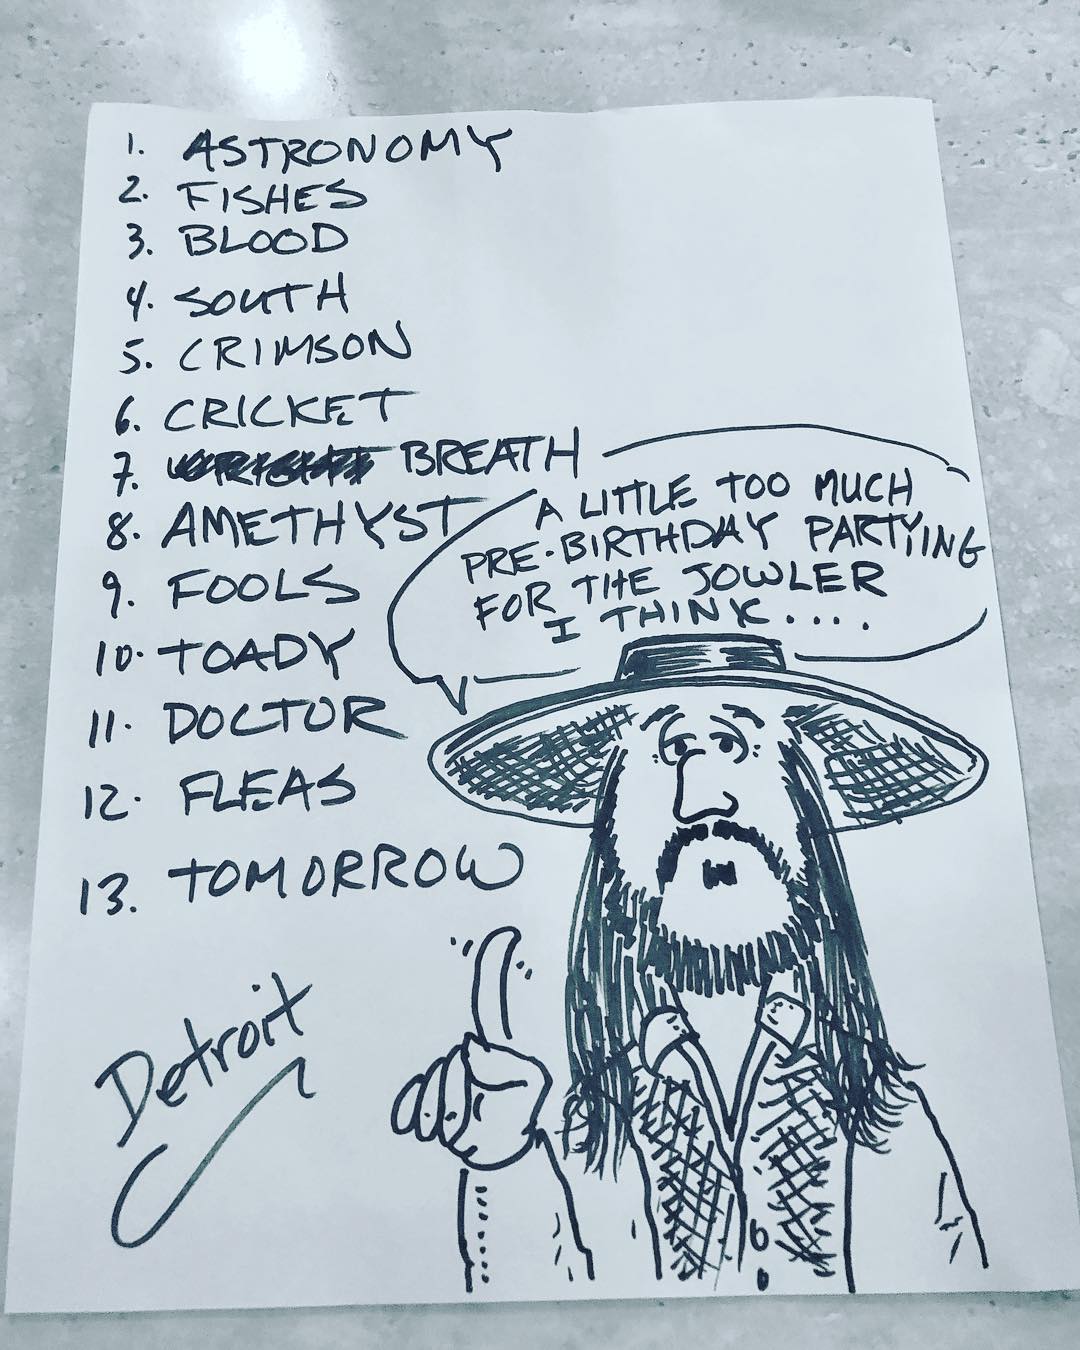 1. ASTRONOMY
2. FISHES
3. BLOOD
4. SOUTH
5. CRIMSON
6. CRICKET
7. BREATH
8. AMETHYST
9. FOOLS
10. TOADY
11. DOCTOR
12. FLEAS
13. TOMORROW
A LITTLE TOO MUCH
PRE-BIRTHDAY PARTYING
FOR THE JOWLER
I THINK....
Detroit